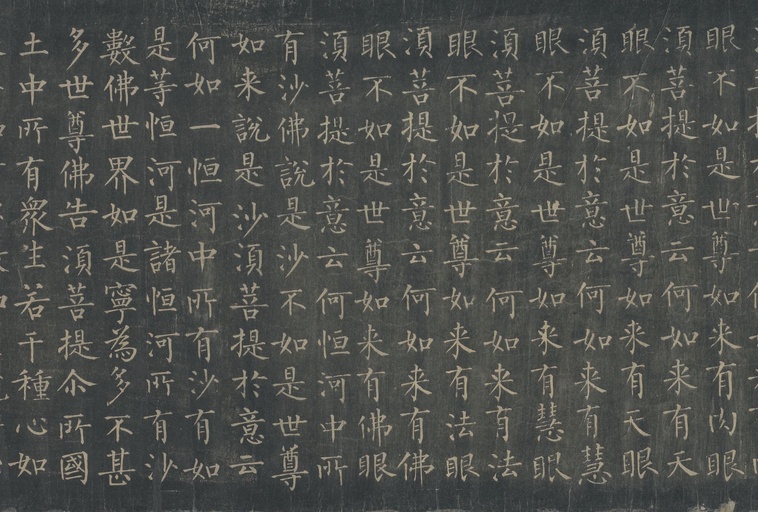 眼不如是世尊如来有肉眼
湏菩提於意云何如来有天
眼不如是世尊如来有天眼
湏菩提於意云何如来有慧
眼不如是世尊如来有慧眼
湏菩提於意云何如来有法
眼不如是世尊如来有法眼
湏菩提於意云何如来有佛
眼不如是世尊如来有佛眼
湏菩提於意云何恒河中所
有沙佛說是沙不如是世尊
如来說是沙湏菩提於意云
何如一恒河中所有沙有如
是等恒河是諸恒河所有沙
數佛世界如是寧為多不甚
多世尊佛告湏菩提尒所國
土中所有衆生若干種心如